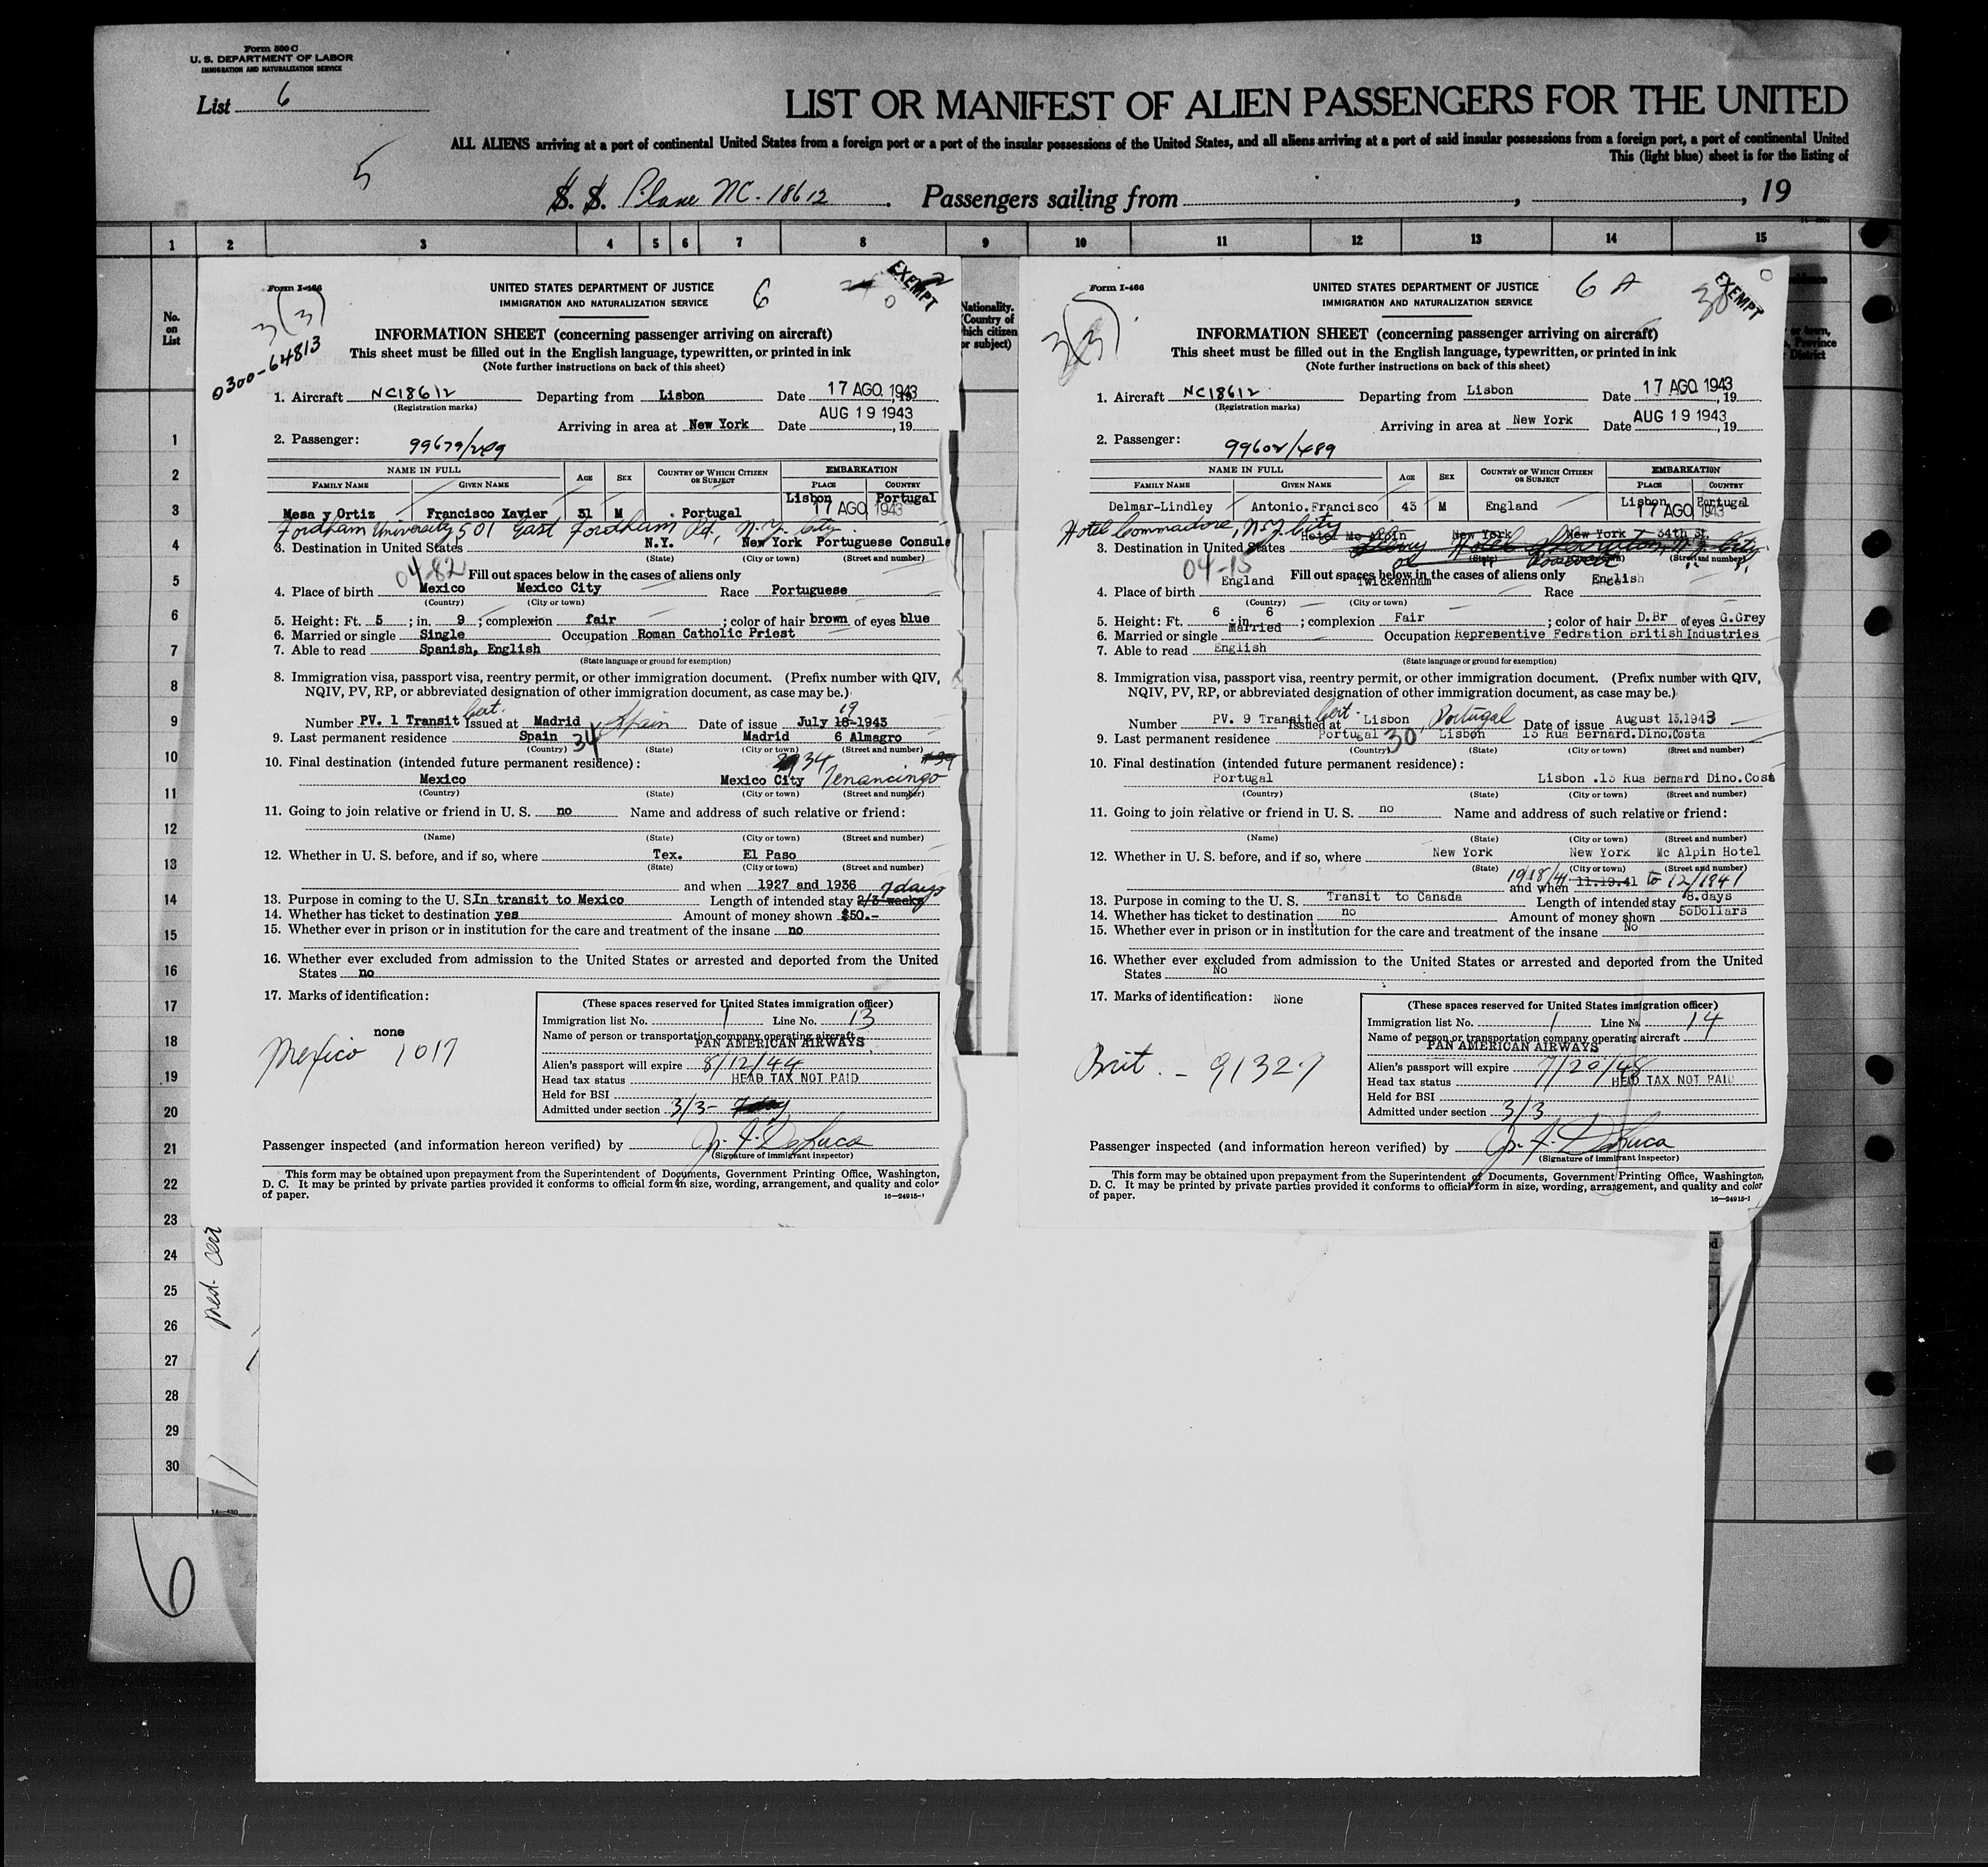 Form 500 C
U. S. DEPARTMENT OF LABOR
IMMIGRATION AND NATURALIZATION SERVICE
List 6
LIST OR MANIFEST OF ALIEN PASSENGERS FOR THE UNITED
ALL ALIENS arriving at a port of continental United States from a foreign port or a part of the insular possessions of the United States, and all aliens arriving at a port of said insular possessions from a foreign port, a port of continental United
This (light blue) sheet is for the listing of
5
S. S. Plane NC-18612. Passengers sailing from , , 19
1 2 3 4 5 6 7 8 9 10 11 12 13 14 15
No. on List
Nationality. (Country of which citizen or subject)
Form I-466
UNITED STATES DEPARTMENT OF JUSTICE 6
IMMIGRATION AND NATURALIZATION SERVICE
EXEMPT
3(3)
0300-64813
INFORMATION SHEET (concerning passenger arriving on aircraft)
This sheet must be filled out in the English language, typewritten, or printed in ink
(Note further instructions on back of this sheet)
1. Aircraft NC18612 Departing from Lisbon Date 17 AGO. 1943
(Registration marks)
Arriving in area at New York Date AUG 19 1943, 19
2. Passenger: 99679/489
NAME IN FULL AGE SEX COUNTRY OF WHICH CITIZEN OR SUBJECT EMBARKATION
FAMILY NAME GIVEN NAME PLACE COUNTRY
Mesa y Ortiz Francisco Xavier 31 M Portugal Lisbon Portugal
17 AGO 1943
Fordham University, 501 East Fordham Rd, N.Y. City.
3. Destination in United States N.Y. New York Portuguese Consule
(State) (City or town) (Street and number)
04-82 Fill out spaces below in the cases of aliens only
4. Place of birth Mexico Mexico City Race Portuguese
(Country) (City or town)
5. Height: Ft. 5 ; in. 9 ; complexion fair ; color of hair brown of eyes blue
6. Married or single Single Occupation Roman Catholic Priest
7. Able to read Spanish, English
(State language or ground for exemption)
8. Immigration visa, passport visa, reentry permit, or other immigration document. (Prefix number with QIV,
NQIV, PV, RP, or abbreviated designation of other immigration document, as case may be.)
Number PV. 1 Transit Cert. Issued at Madrid Spain Date of issue July 18-1943 19
9. Last permanent residence Spain 34 Madrid 6 Almagro
(Country) (State) (City or town) (Street and number)
10. Final destination (intended future permanent residence): 34
Mexico Mexico City Tenancingo #39
(Country) (State) (City or town) (Street and number)
11. Going to join relative or friend in U. S. no Name and address of such relative or friend:
(Name) (State) (City or town) (Street and number)
12. Whether in U. S. before, and if so, where Tex. El Paso
(State) (City or town) (Street and number)
and when 1927 and 1936 7 days
13. Purpose in coming to the U. S. In transit to Mexico Length of intended stay 2/3 weeks
14. Whether has ticket to destination yes Amount of money shown $50.-
15. Whether ever in prison or in institution for the care and treatment of the insane no
16. Whether ever excluded from admission to the United States or arrested and deported from the United
States no
17. Marks of identification:
none
Mexico 1017
(These spaces reserved for United States immigration officer)
Immigration list No. 1 Line No. 13
Name of person or transportation company operating aircraft
PAN AMERICAN AIRWAYS
Alien's passport will expire 8/12/44
Head tax status HEAD TAX NOT PAID
Held for BSI
Admitted under section 3/3- 7 day
Passenger inspected (and information hereon verified) by
(Signature of immigrant inspector)
This form may be obtained upon prepayment from the Superintendent of Documents, Government Printing Office, Washington,
D. C. It may be printed by private parties provided it conforms to official form in size, wording, arrangement, and quality and color
of paper. 16—24915-1
Form I-466
UNITED STATES DEPARTMENT OF JUSTICE 6 A
IMMIGRATION AND NATURALIZATION SERVICE
30 EXEMPT
3(3)
INFORMATION SHEET (concerning passenger arriving on aircraft)
This sheet must be filled out in the English language, typewritten, or printed in ink
(Note further instructions on back of this sheet)
1. Aircraft NC18612 Departing from Lisbon Date 17 AGO. 1943, 19
(Registration marks)
Arriving in area at New York Date AUG 19 1943, 19
2. Passenger: 99602/489
NAME IN FULL AGE SEX COUNTRY OF WHICH CITIZEN OR SUBJECT EMBARKATION
FAMILY NAME GIVEN NAME PLACE COUNTRY
Delmar-Lindley Antonio.Francisco 43 M England Lisbon Portugal
17 AGO 1943
Hotel Commadore, N.Y. City
3. Destination in United States Hotel Mc Alpin New York New York 34th St.
(State) (City or town) (Street and number)
04-15 Fill out spaces below in the cases of aliens only
4. Place of birth England Twickenham Race English
(Country) (City or town)
5. Height: Ft. 6 ; in. 6 ; complexion Fair ; color of hair D.Br of eyes G.Grey
6. Married or single Married Occupation Representive Fedration British Industries
7. Able to read English
(State language or ground for exemption)
8. Immigration visa, passport visa, reentry permit, or other immigration document. (Prefix number with QIV,
NQIV, PV, RP, or abbreviated designation of other immigration document, as case may be.)
Number PV. 9 Transit Cert. Issued at Lisbon, Portugal Date of issue August 13.1943
9. Last permanent residence Portugal 30 Lisbon 13 Rua Bernard.Dino.Costa
(Country) (State) (City or town) (Street and number)
10. Final destination (intended future permanent residence):
Portugal Lisbon .13 Rua Bernard Dino.Costa
(Country) (State) (City or town) (Street and number)
11. Going to join relative or friend in U. S. no Name and address of such relative or friend:
(Name) (State) (City or town) (Street and number)
12. Whether in U. S. before, and if so, where New York New York Mc Alpin Hotel
(State) (City or town) (Street and number)
and when 11.19.41 to 12/1941
13. Purpose in coming to the U. S. Transit to Canada Length of intended stay 8.days
14. Whether has ticket to destination no Amount of money shown 50Dollars
15. Whether ever in prison or in institution for the care and treatment of the insane No
16. Whether ever excluded from admission to the United States or arrested and deported from the United
States No
17. Marks of identification: None
Brit. - 91327
(These spaces reserved for United States immigration officer)
Immigration list No. 1 Line No. 14
Name of person or transportation company operating aircraft
PAN AMERICAN AIRWAYS
Alien's passport will expire 7/20/48
Head tax status HEAD TAX NOT PAID
Held for BSI
Admitted under section 3/3
Passenger inspected (and information hereon verified) by
(Signature of immigrant inspector)
This form may be obtained upon prepayment from the Superintendent of Documents, Government Printing Office, Washington,
D. C. It may be printed by private parties provided it conforms to official form in size, wording, arrangement, and quality and color
of paper. 16—24915-1
1
2
3
4
5
6
7
8
9
10
11
12
13
14
15
16
17
18
19
20
21
22
23
24
25
26
27
28
29
30
med. cert
6